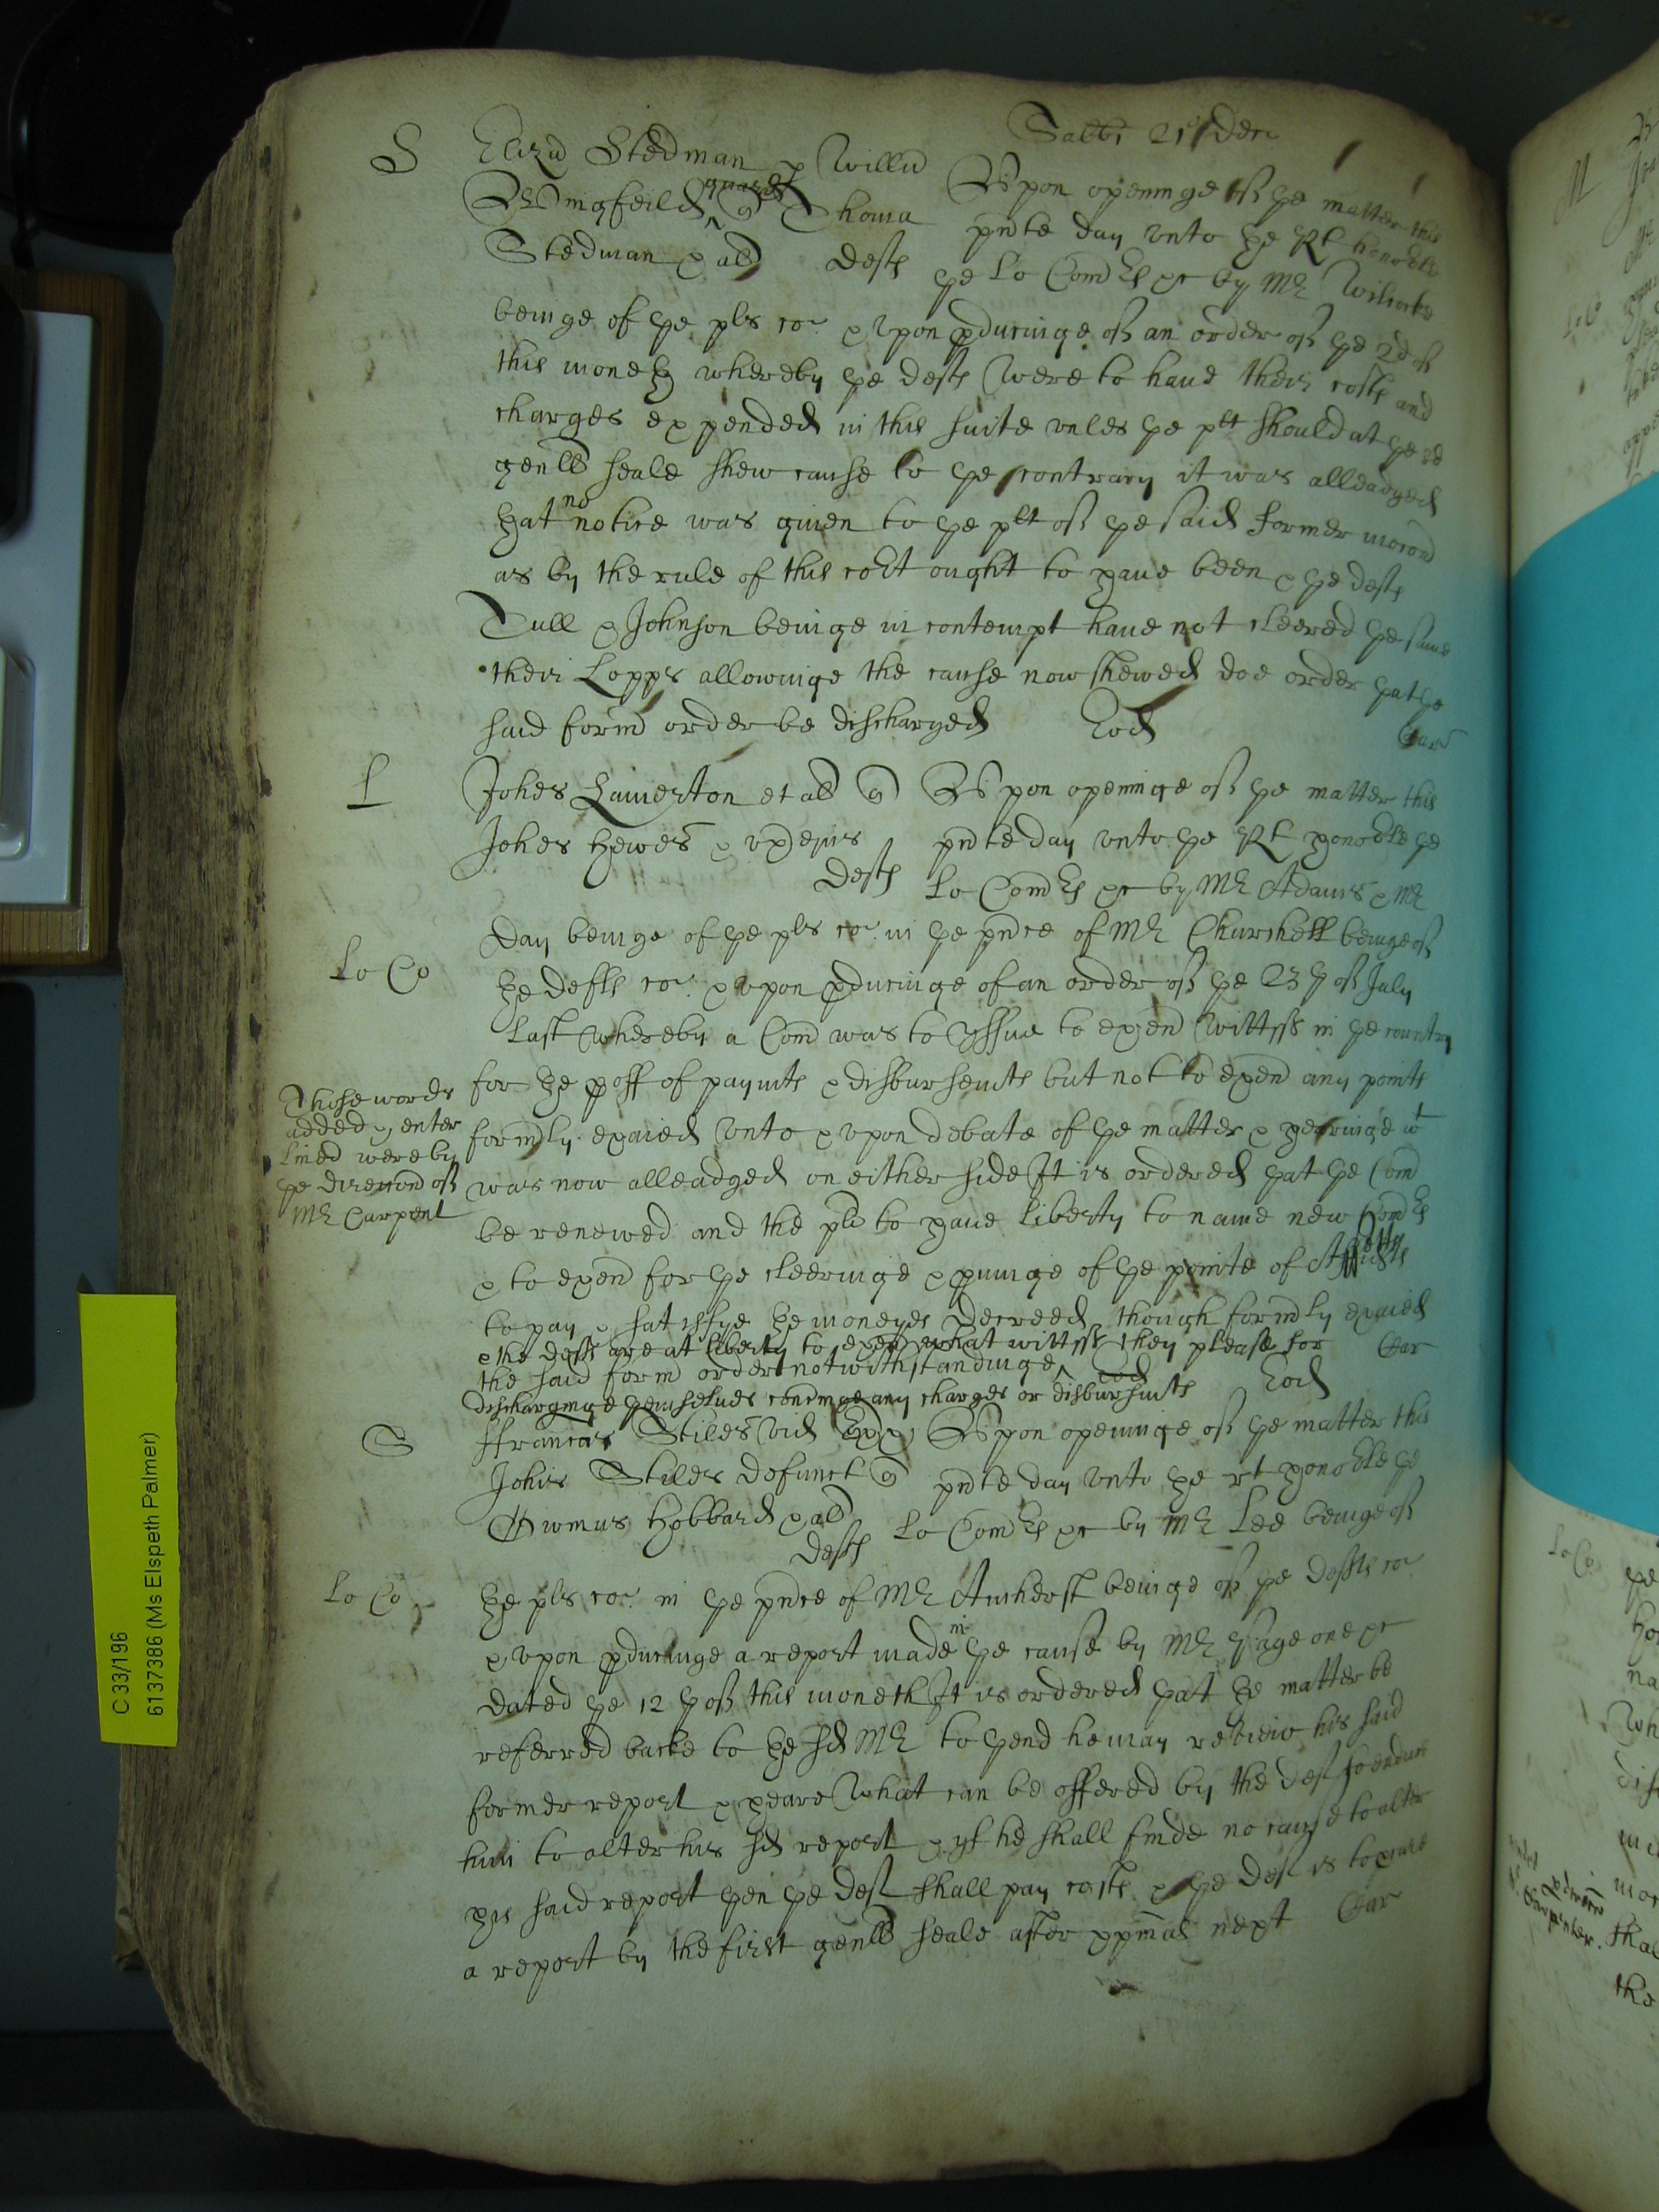 Sabbi 21° Dec
S
Eliza Stedman & Willu
Wingfeild quer
Thoma
Stedman & al Defts
Upon openinge of the matter this
pnte day unto the Rt honoble
the Lo Comrs &c by Mr Wilcocks
beinge of the pls co & upon pducinge of an order of the 2d of
this moneth whereby the defts were to have their costs and
charges expended in this suite unles the plt should at the 2d
genll seale shew cause to the contrary it was alleadged
that no notice was given to the plt of the said former mocon
as by the rule of this cort ought to have been & the defts
Tull & Johnson beinge in contempt have not cleered the same
their Lopps allowinge the cause now shewed doe order that the
said form order be discharged Eod
Car
L
Johes Lamerton et al
Johes Hewes & ux ejus
Defts
Upon openinge of the matter this
pnte day unto the Rt honoble the
Lo Comrs &c by Mr Adams & Mr
Day beinge of the pls co in the pnce of Mr Churchill beinge of
Lo Co
the defts co & upon pducinge of an order of the 23th of July
last whereby a Com was to yssue to exen wittss in the country
for the proff of paymts & disbursemts but not to exen any points
formly exaied unto & upon debate of the matter & hearinge wt
was now alleadged on either side It is ordered that the Com
be renewed and the pl to have liberty to name new Comrs
& to exen for the cleeringe & pvinge of the pointe of
to pay & satisfye the moneyes decreed though formly exaied
& the defts are at liberty to exen what wittss they please for
the said form order notwithstandinge Eod
Car
discharginge themselves concninge any charges or disbursmts
Eod
Those words
added & enter
lined were by
the direccon of
Mr Carpent
S
ffrancas Stiles vid Exx
Johis Stiles defunct
Thomas Hobbard & al
Defts
Upon openinge of the matter this
pnte day unto the rt honoble the
Lo Comrs &c by Mr Lee beinge of
Lo Co
the pls co in the pnce of Mr Amherst beinge of the defts co
& upon pducinge a report made in the cause by Mr Page one &c
dated the 12th of this moneth It is ordered that the matter be
referred backe to the sd Mr to thend he may review his said
former report & heare what can be offered by the deft to enduce
him to alter his sd report & yf he shall finde no cause to alter
his said report then the deft shall pay costs & the deft is to pcure
a report by the first genll seale after xpmas next Car
C 33/196
6137386 (Ms Elspeth Palmer)